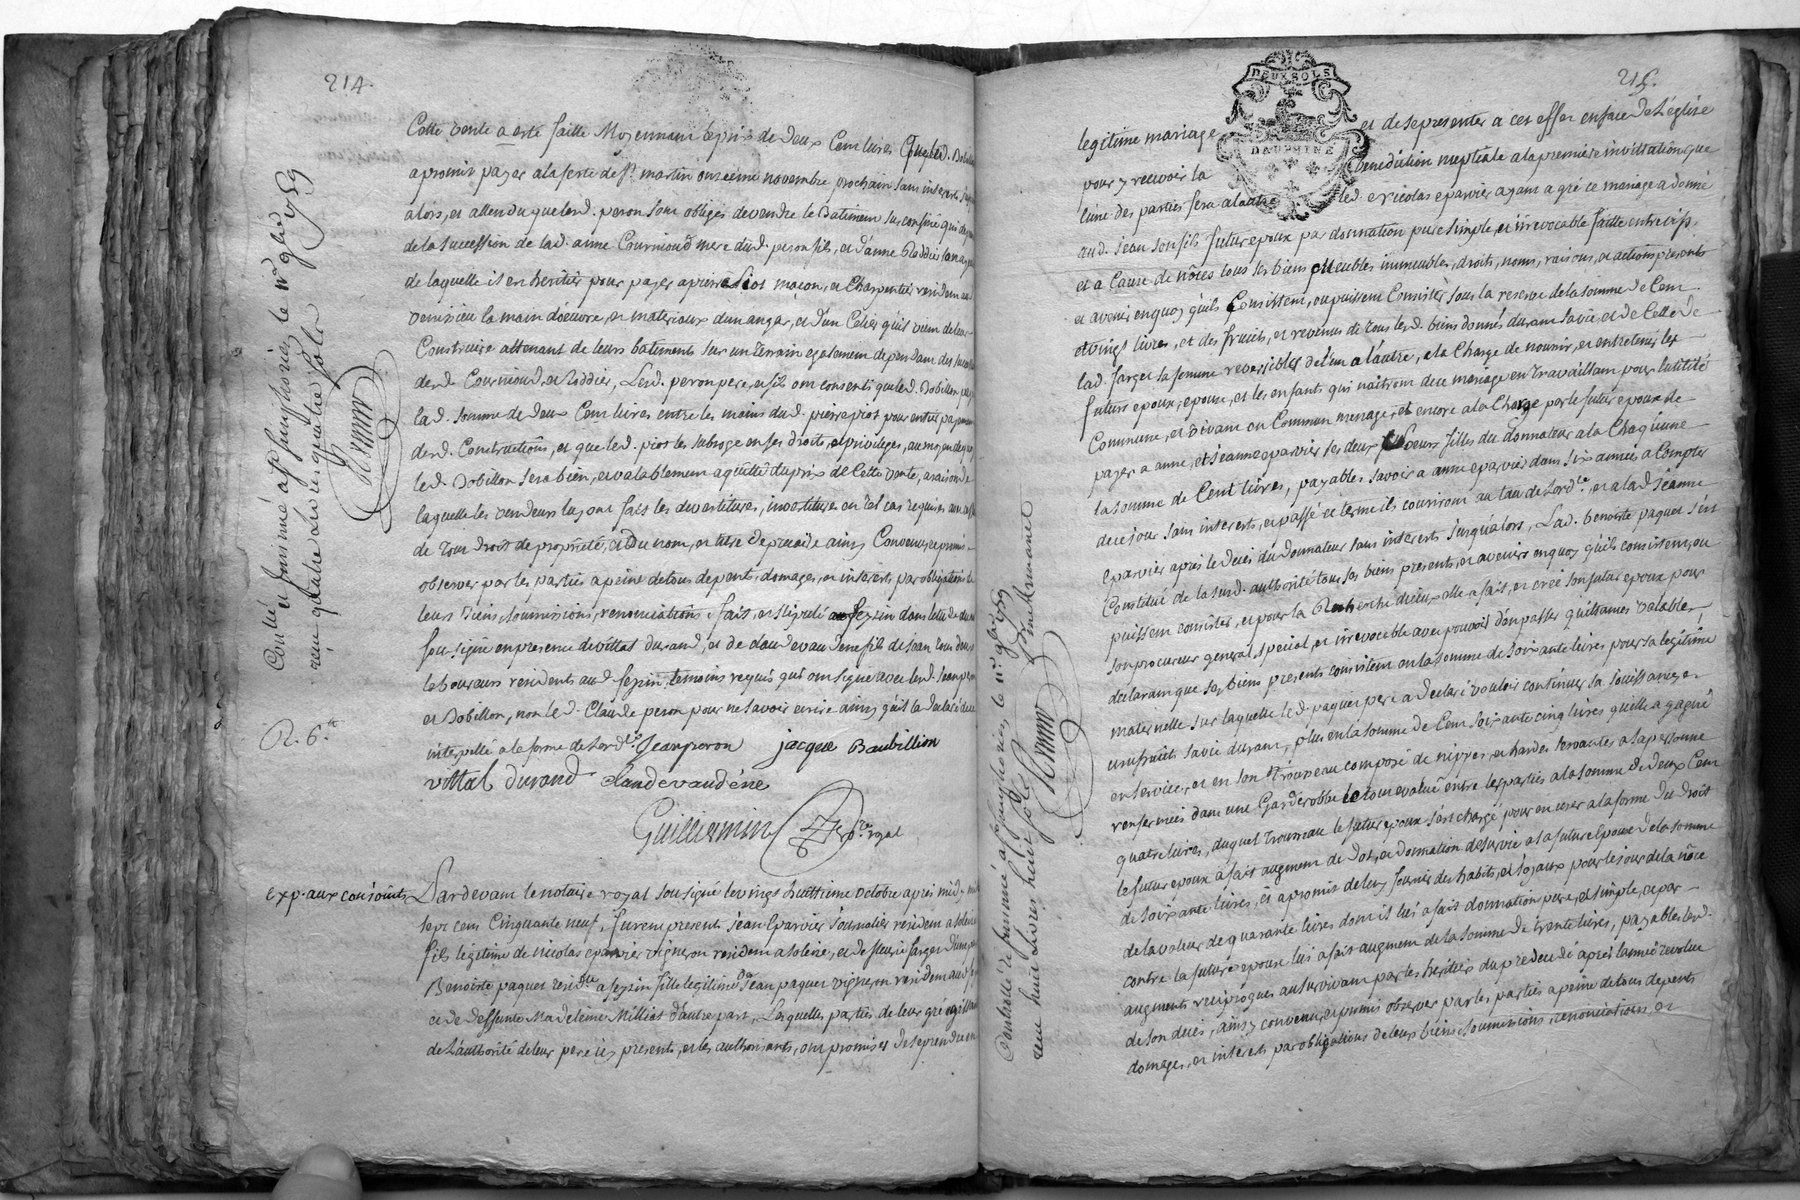 214.
Cette vente a esté faitte Moyennant le prix de deux Cent livres Que led. Bobillon
a promis payer a la feste de st. martin onzeiéme novembre prochain sans interests jusqu
alors, et attendu que lesd. peron sont obligés de vendre le Batiment sus confiné qui depend
de la succession de lad. anne Cournioud mere dud. peron fils, et d'anne Roddier
de laquelle il est heritier pour payer a pierre piot maçon, et Charpentier resident au
venissieu la main d'œuvre, et materiaux d'un angar, et d'un Célier qu'il vient de leur
Construire attenant de leurs batiments sur un terrain egalement dependant des
desd. Cournioud, et Roddier, Lesd. peron pere, et fils ont consenti que led. Bobillon
lad. somme de deux Cent livres entre les mains dud. pierre piot pour entier payement
desd. Constructions, et que led. piot le subroge en ses droits, et privileges, au moyen de quoy
led. Bobillon sera bien, et valablement aquitté du prix de Cette vente, a raison de
laquelle les vendeurs luy ont fait les devestitures, investitures en tel cas requises, avec
de tout droit de proprieté, et du nom, et titre de precaire ainsy Convenu, et promis
observer par les parties a peine de tous depents, domages, et interests par obligations de
leurs Biens, soumissions, renonciations, fait, et stipulé au feyzin dans letude du no.re
sousigné en presence de vittal durand, et de claude vaudene fils de jean tous deux
laboureurs residents aud. feyzin, temoins requis qui ont signé avec lesd. jean peron
et Bobillon, non led. Claude peron pour ne savoir ecrire ainsy qu'il la declaré de ce
interpellé a la forme de l'ord.ce Jean peron jacque Baubillion
vittal durand Claude vaudéne
Guillermin no.re royal
Conllé et insinué a st simphorien le 11e 9bre 1759
reçu quatre livres quatre sols
R. 6.s
exp. aux conjoints
Pardevant le notaire royal sousigné le vingt huittiéme octobre après midy mil
sept cent Cinquante neuf, furent presents jean Eparvier journalier resident a solaise
fils legitime de nicolas eparvier vigneron resident a solaise, et de fleurie farges d'une part
Benoiste paquet resid.te a feyzin fille legitime de jean paquet vigneron resident aud. feyzin
et de deffunte Madeleine Milliat d'autre part, Lesquelles parties de leur gré agissant
de L'authorité de leur pere icy presents, et les authorisants, ont promis se prendre en
215.
DEUX SOLS
DAUPHINE
legitime mariage et de se presenter a cet effet en face de L'eglise
pour y recevoir la benediction nuptiale a la premiere invittation que
l'une des parties fera a l'autre led. nicolas eparvier ayant agréé ce mariage a donné
aud. jean son fils futur epoux par donnation pure, simple, et irrevocable faitte entre vifs
et a Cause de nôces tous ses biens Meubles, immeubles, droits, noms, raisons, et actions presents
et avenir en quoy qu'ils Consistent, ou puissent Consister sous la reserve de la somme de Cent
et vingt livres, et des fruits, et revenus de tous lesd. biens donnés durant sa vie, et de Celle de
lad. farges sa femme reversibles de l'un a l'autre, a la Charge de nourrir, et entretenir les
futurs epoux, epouse, et les enfants qui naitront de ce mariage en travaillant pour l'utilité
Commune, et vivant en Commun menage, et encore a la Charge par le futur epoux de
payer a anne, et jeanne eparvier ses deux soeurs filles du donnateur a la Chaqu'une
la somme de Cent livres, payables savoir a anne eparvier dans six années a Compter
de ce jour sans interests, et passé ce terme ils courriront au taux de l'ord.ce, et a lad. jeanne
eparvier après le decès du donnateur sans interests jusqu'alors, Lad. benoiste paquet s'est
Constitué de la susd. authorité tous ses biens presents, et avenirs en quoy qu'ils consistent, ou
puissent consister, et pour la Recherche d'iceux elle a fait, et créé son futur epoux pour
son procureur general, special, et irrevocable avec pouvoir d'en passer quittances valables,
declarant que ses biens presents consistent en la somme de soixante livres pour sa legitime
maternelle sur laquelle led. paquet pere a declaré vouloir continuer sa jouissance, et
usufruit sa vie durant, plus en la somme de Cent soixante cinq livres quelle a gagné
en service, et en son trousseau composé de nippes, et hardes servantes a sa personne
renfermées dans une Garderobbe le tout evalué entre les parties a la somme de deux Cent
quatre livres, duquel trousseau le futur epoux s'est chargé pour en user a la forme du droit
le futur epoux a fait augment de dot, et donnation de survie a sa future Epouse de la somme
de soixante livres, et a promis de luy fournir des habits, et joyaux pour le jour de la nôce
de la valeur de quarante livres dont il luy a fait donnation pure, et simple, et par
contre la future epouse luy a fait augment de la somme de trente livres, payables lesd.
augments reciproques au survivant par les heritiers du predecedé après l'année revolue
de son decès, ainsy convenu, et promis observer par les parties a peine de tous depents
domages, et interests par obligations de leurs biens, soumissions, renonciations, et
Controllé et insinué a st simphorien le 11e 9bre 1759
reçu huit livres huit sols